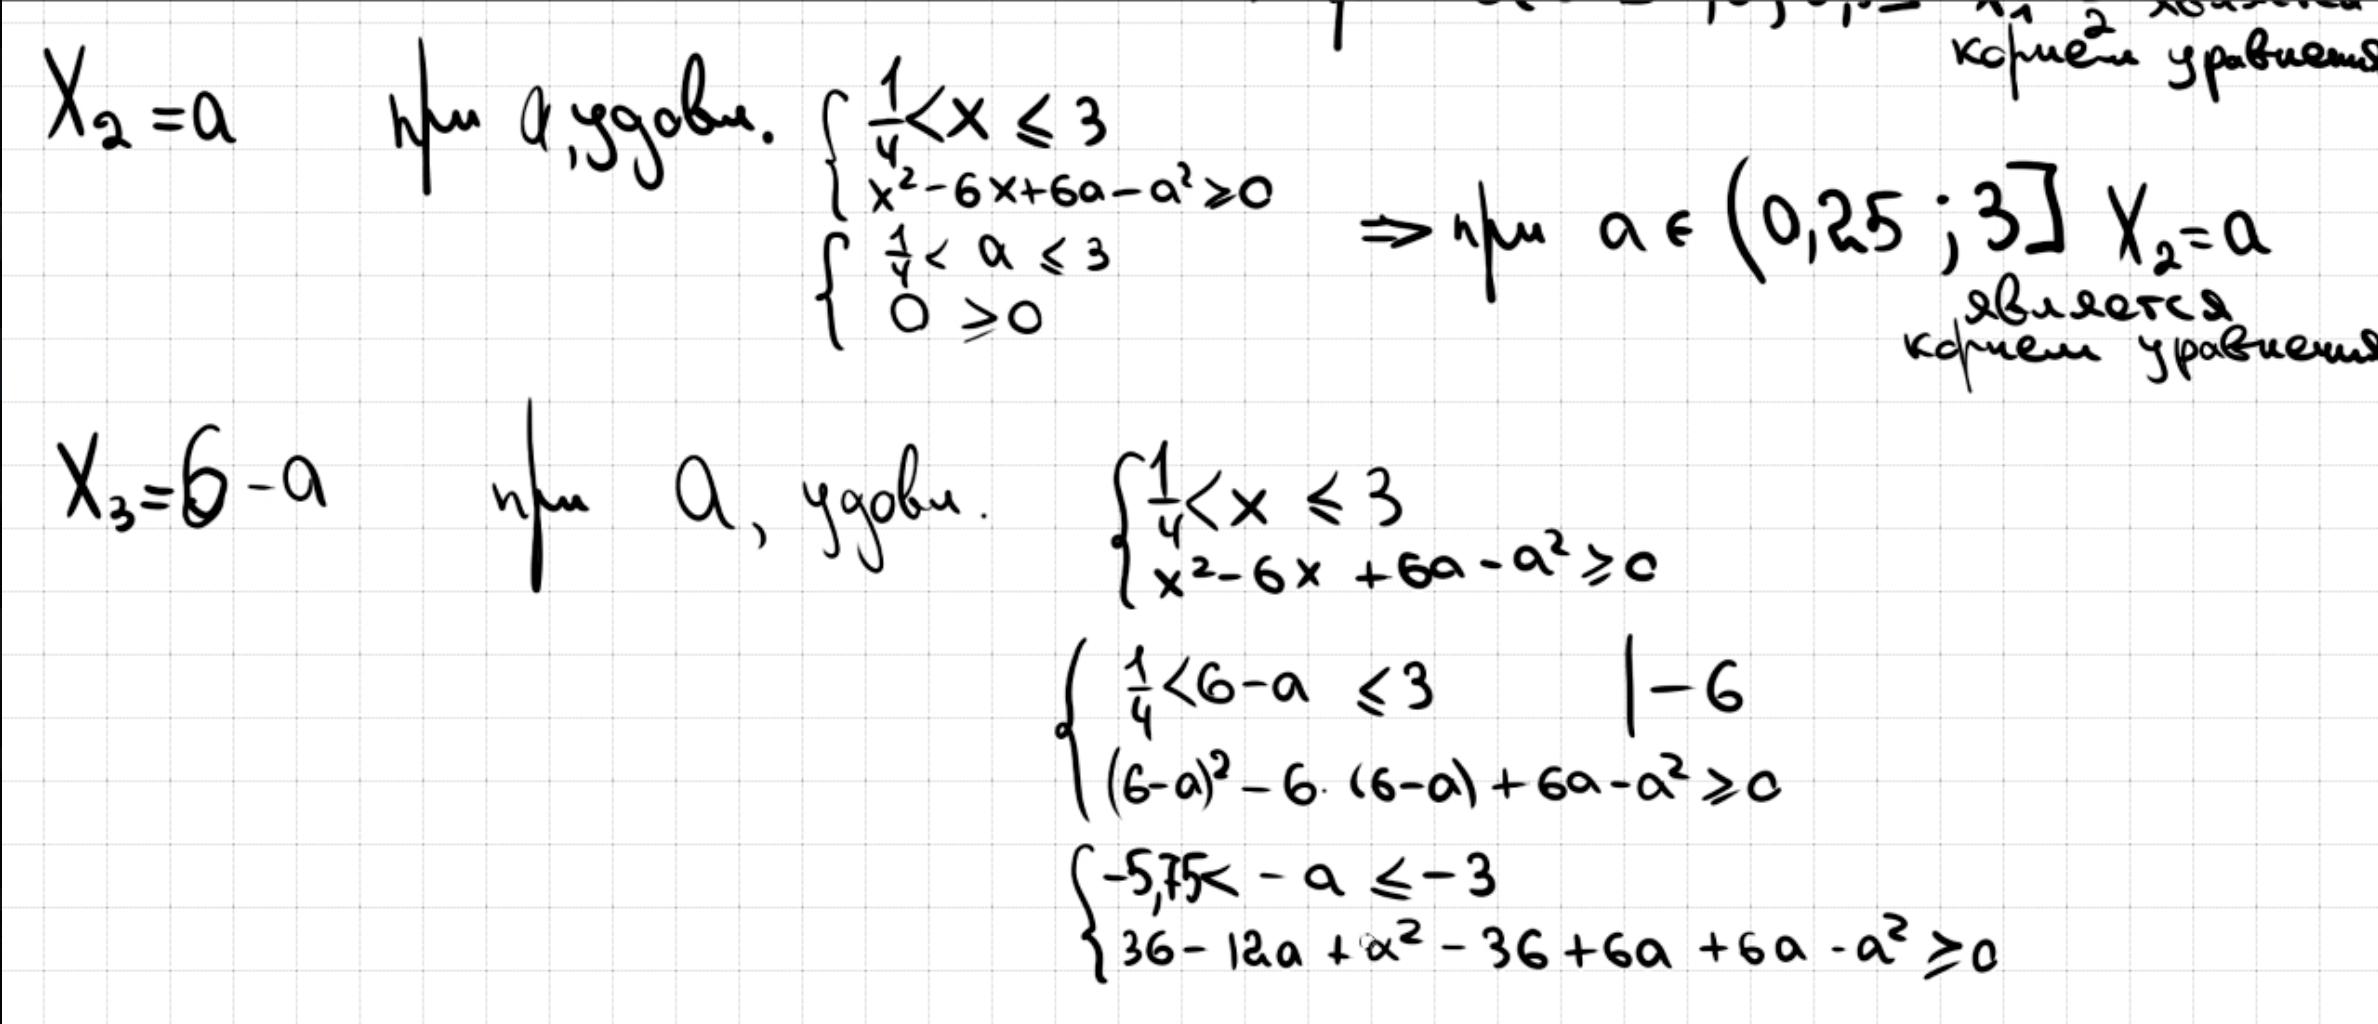 корнем уравнения
X₂ = a при a, удовл. { 1/4 < x ≤ 3
x² - 6x + 6a - a² ≥ 0
{ 1/4 < a ≤ 3
0 ≥ 0
⇒ при a ∈ (0,25 ; 3] X₂ = a
является
корнем уравнения
X₃ = 6 - a при a, удовл. { 1/4 < x ≤ 3
x² - 6x + 6a - a² ≥ 0
{ 1/4 < 6 - a ≤ 3 | - 6
(6-a)² - 6 · (6-a) + 6a - a² ≥ 0
{ -5,75 < - a ≤ -3
36 - 12a + a² - 36 + 6a + 6a - a² ≥ 0